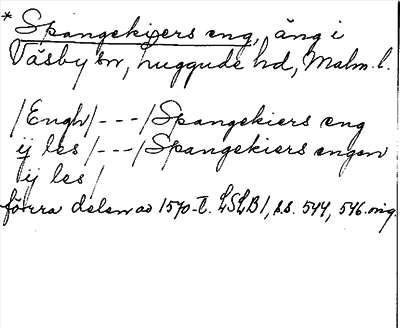 * Spangekijers eng, äng i
Väsby sn, Luggude hd, Malm. l.
/Engh/---/Spangekiers eng
ij les/---/Spangekiers engen
ij les/
förra delen av 1570-t. LSLB 1, s.s. 544, 546. orig.